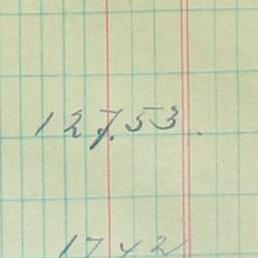 127.53
1742